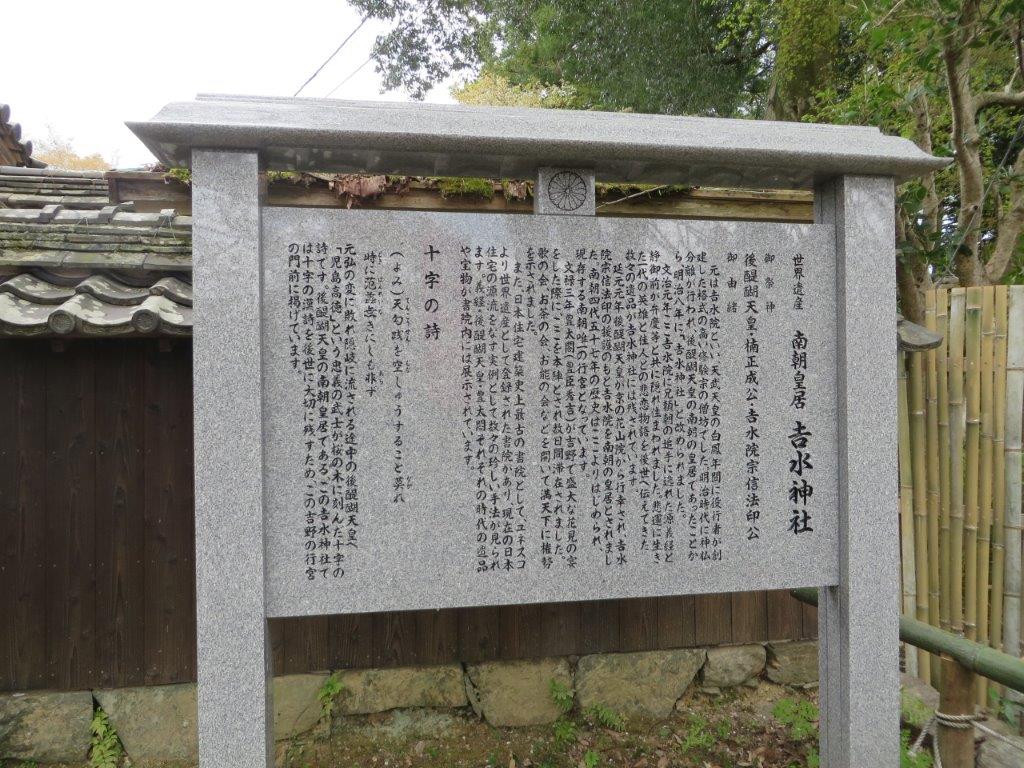 世界遺産　南朝皇居　吉水神社
御祭神
後醍醐天皇・楠正成公・吉水院宗信法印公
御由緒
元は吉水院といい天武天皇の白鳳年間に役行者が創
建した格式の高い修験宗の僧坊でした。明治時代に神仏
分離が行われ、後醍醐天皇の南朝の皇居であったことか
ら明治八年に、「吉水神社」と改められました。
文治元年、ここ吉水院に兄頼朝の追手に追われた源義経と
静御前が弁慶等と共に隠れ住まわれました。悲運に生き
た一代の英雄と佳人との悲恋物語を後世へ伝えてきた
数々の遺品が吉水神社には残されています。
延元元年、後醍醐天皇が京の花山院から行幸され、吉水
院宗信法印の援護のもと吉水院を南朝の皇居とされまし
た。南朝四代五十七年の歴史はここよりはじめられ、
現存する南朝唯一の行宮となっています。
文禄三年、豊太閤(豊臣秀吉)が吉野で盛大な花見の宴
をした際に、ここを本陣とされ数日間滞在されました。
歌の会、お茶の会、お能の会などを開いて満天下に権勢
を示されました。
また、日本住宅建築史上最古の書院として、ユネスコ
より世界遺産として登録された書院があり、現在の日本
住宅の源流をなす実例として数々の珍しい手法が見られ
ます。義経・後醍醐天皇・豊太閤それぞれの時代の遺品
や宝物が書院内には展示されています。
十字の詩
(よみ)天勾践を空しゅうすること莫れ
時に范蠡無きにしも非ず
元弘の変に敗れ隠岐に流される途中の後醍醐天皇へ
「児島高徳」という忠義の武士が桜の木に刻んだ十字の
詩です。後醍醐天皇の南朝皇居である、この吉水神社で
は十字の漢詩を後世に大切に残すため、この吉野の行宮
の門前に掲げています。